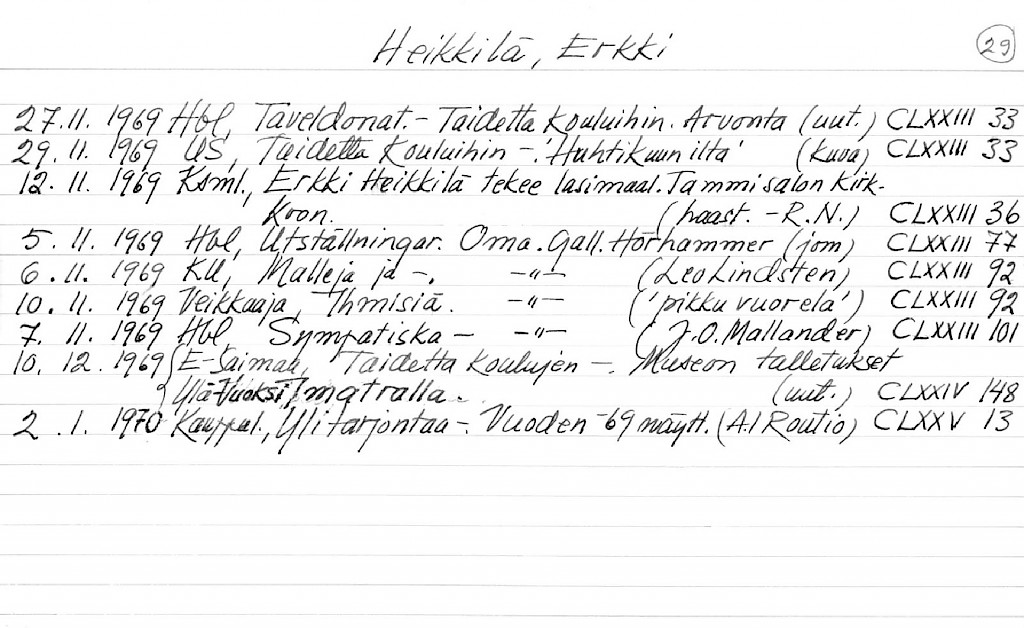 Heikkilä, Erkki 29
27.11. 1969 Hbl, Taveldonat. - Taidetta kouluihin. Arvonta (uut.) CLXXIII 33
29.11. 1969 US, Taidetta kouluihin -. 'Huhtikuun ilta' (kuva) CLXXIII 33
12.11. 1969 Ksml., Erkki Heikkilä tekee lasimaal. Tammisalon kirk-
koon. (haast. - R.N.) CLXXIII 36
5. 11. 1969 Hbl, Utställningar. Oma. Gall. Hörhammer (jom) CLXXIII 77
6.11. 1969 KU, Malleja ja -. -"- (Leo Lindsten) CLXXIII 92
10.11. 1969 Veikkaaja, Ihmisiä. -"- ('pikku vuorela') CLXXIII 92
7. 11. 1969 Hbl, Sympatiska - -"- (J.O. Mallander) CLXXIII 101
10. 12. 1969 E-Saimaa, Taidetta koulujen -. Museon talletukset
Ylä-Vuoksi, Imatralla. (uut.) CLXXIV 148
2 .1. 1970 Kauppal., Ylitarjontaa -. Vuoden -69 näytt. (A.I Routio) CLXXV 13